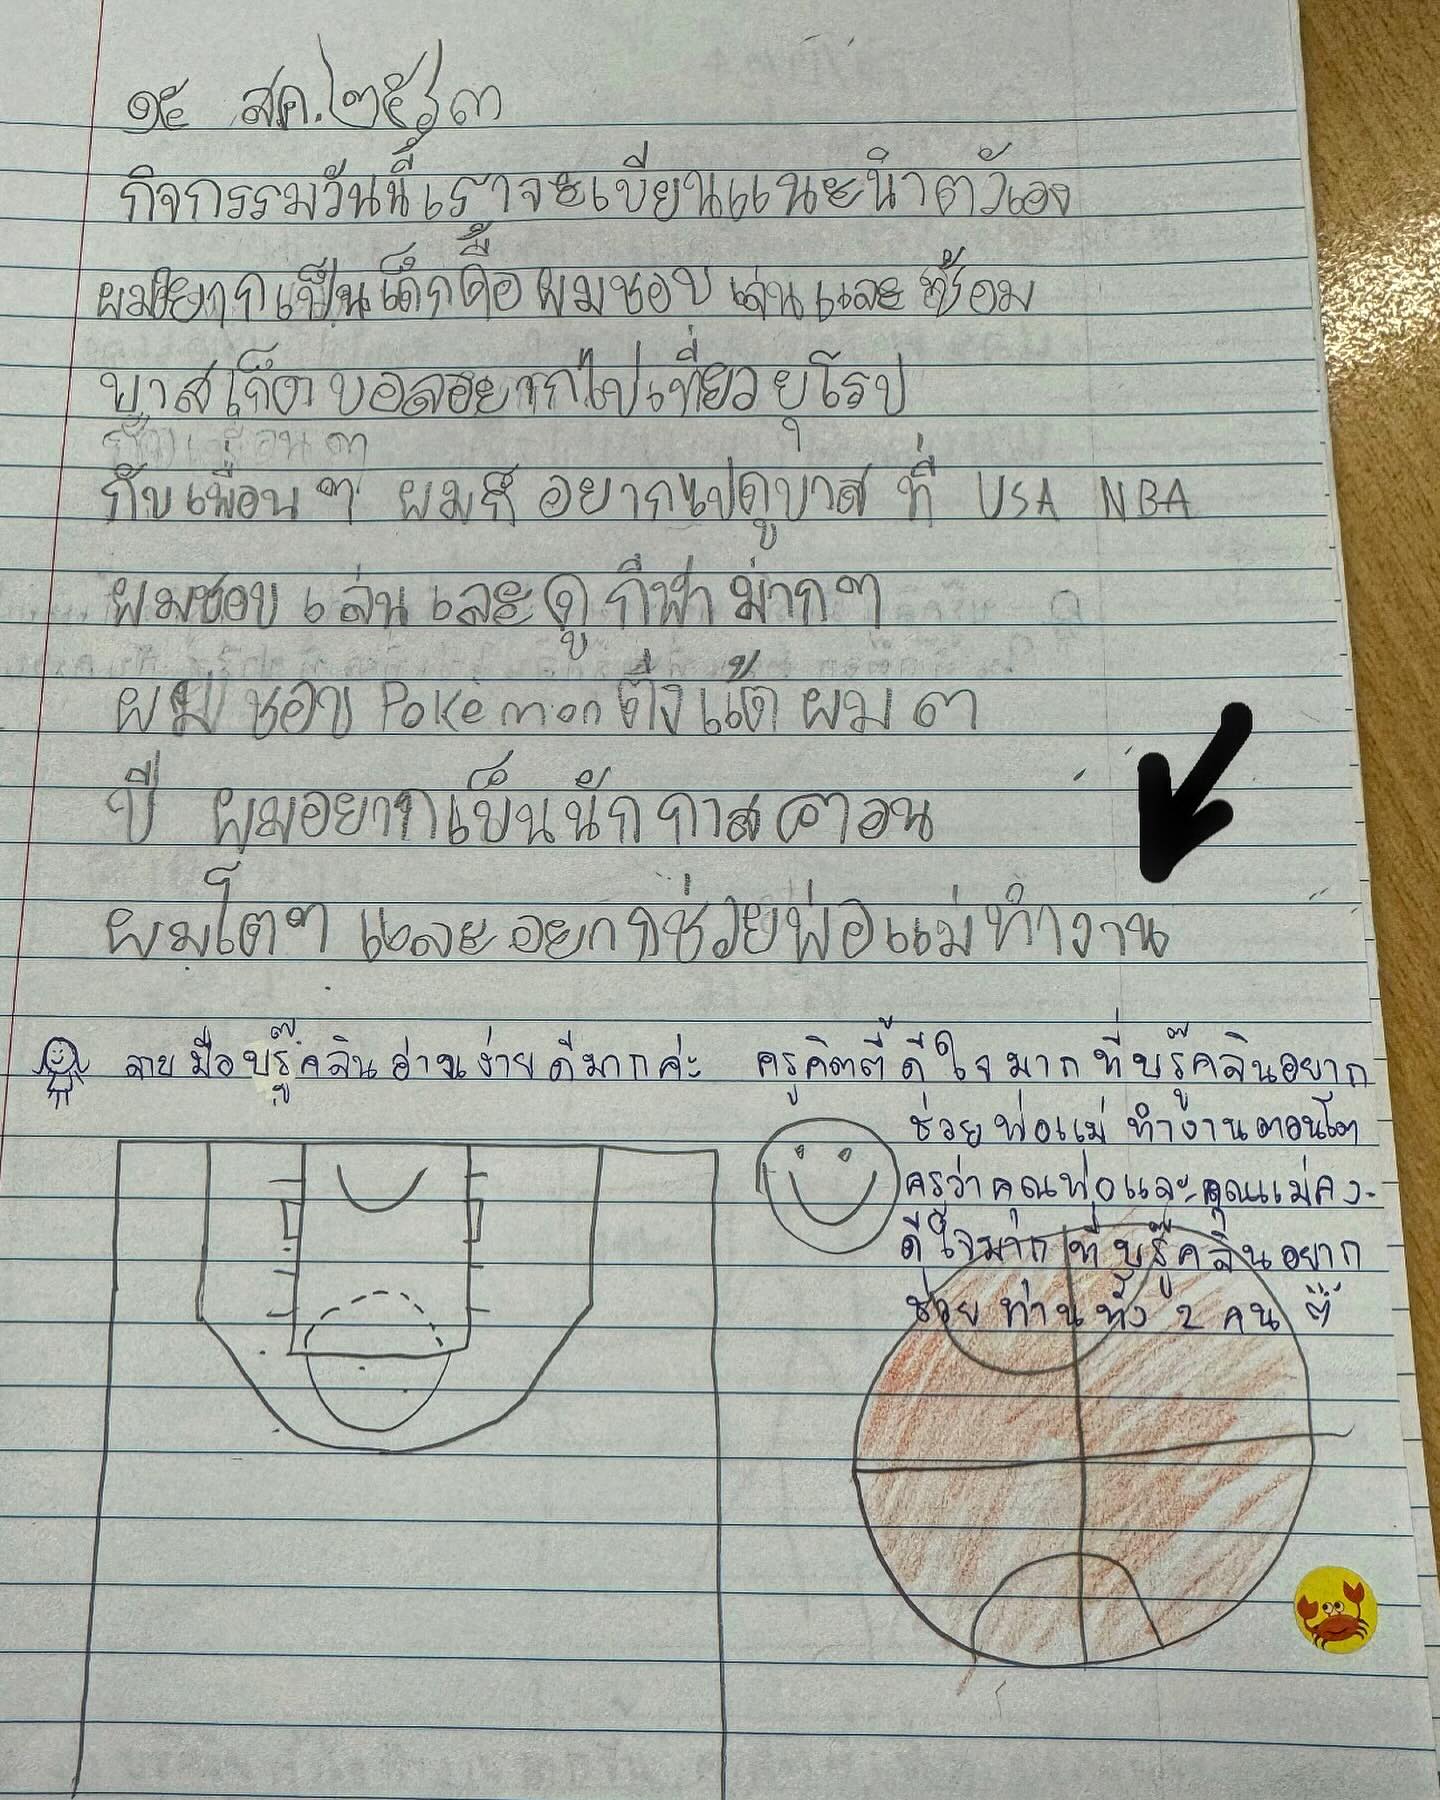 ๑๕ สค. ๒๕๖๓
กิจกรรมวันนี้เราจะเขียนแนะนำตัวเอง
ผมอยากเป็นเด็กดื้อ ผมชอบ เล่นและซ้อม
บาสเก็ตบอลอยากไปเที่ยวยุโรป
กับเพื่อนๆ ผมก็อยากไปดูบาส ที่ USA NBA
ผมชอบ เล่นและดูกีฬามากๆ
ผมชอบ Pokémon ตั้งแต่ ผม ๓
ปี ผมอยากเป็นนักบาสตอน
ผมโตๆ และอยากช่วยพ่อแม่ทำงาน
ลายมือบรู๊คลินอ่านง่ายดีมากค่ะ ครูคิตตี้ดีใจมากที่บรู๊คลินอยาก
ช่วยพ่อแม่ทำงานตอนโต
ครูว่าคุณพ่อและคุณแม่คง-
ดีใจมากที่บรู๊คลินอยาก
ช่วยท่านทั้ง 2 คน